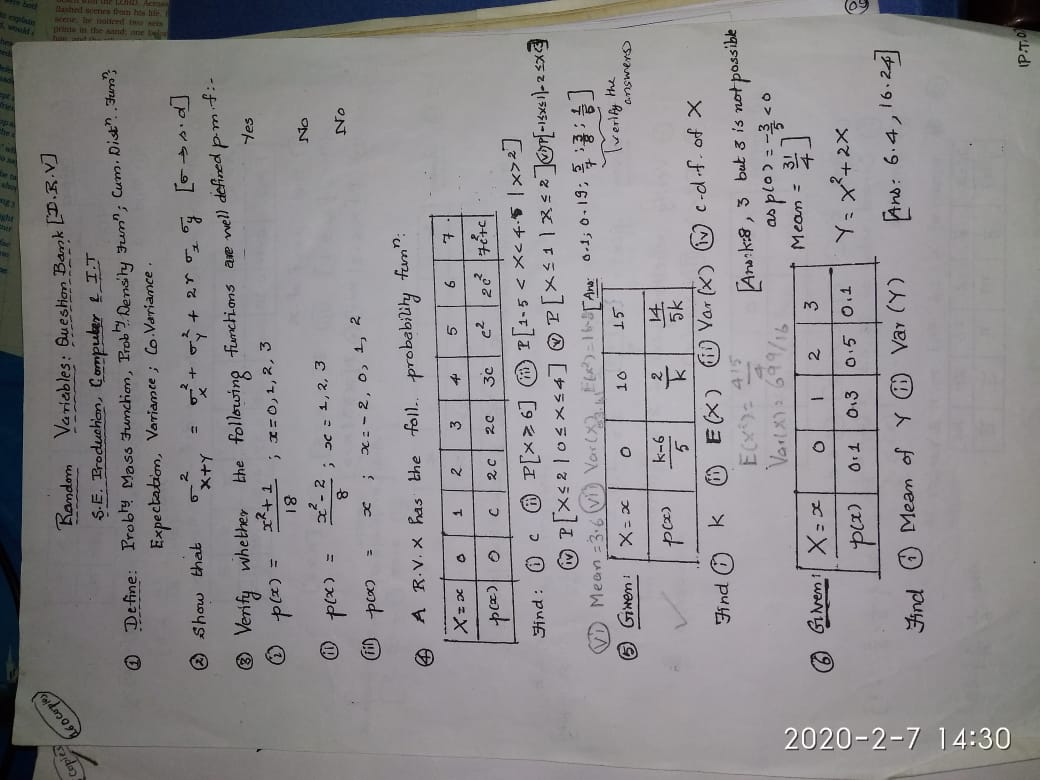 copies
160 copies
Random Variables: Question Bank [D.R.V]
S.E. Production, Computer & I.T
① Define: Probᵗʸ Mass Function, Probᵗʸ Density Funⁿ; Cum. Distⁿ. Funⁿ;
Expectation, Variance; Co.Variance.
② Show that σ²_X+Y = σ²_X + σ²_Y + 2r σ_x σ_y [σ → s.d]
③ Verify whether the following functions are well defined p.m.f:-
ⓘ p(x) = x²+1/18 ; x=0,1,2,3 Yes
(ii) p(x) = x²-2/8 ; x = 1,2,3 No
(iii) p(x) = x ; x=-2, 0, 1, 2 No
④ A R.V. X has the foll. probability funⁿ:
X=x 0 1 2 3 4 5 6 7
p(x) 0 c 2c 2c 3c c² 2c² 7c²+c
Find: (i) c (ii) P[X≥6] (iii) P[1.5 < X < 4.5 | X>2]
(iv) P[X≤2 | 0≤X≤4] (v) P[X≤1 | X≤2] (vi) P[-1≤X≤1|-2≤X<3]
(vi) Mean = 3.6 (vii) Var(X) E(x²)=16.8 [Ans: 0.1; 0.19; 5/7; 3/8; 1/5]
verify the
answers
⑤ Given: X=x 0 10 15
p(x) k-6/5 2/k 14/5k
Find (i) k (ii) E(X) (iii) Var(X) (iv) c.d.f. of X
E(X²) = 415/4 [Ans: k:8, 3 but 3 is not possible
as p(0) = -3/5 < 0
Var(X) = 699/16 Mean = 31/4]
⑥ Given: X=x 0 1 2 3
p(x) 0.1 0.3 0.5 0.1 Y = X²+2X
Find (i) Mean of Y (ii) Var(Y) [Ans: 6.4, 16.24]
(P.T.O
2020-2-7 14:30